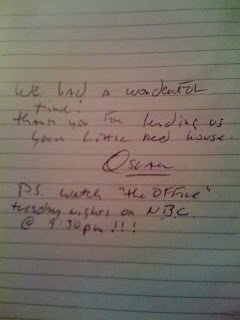 We had a wonderful
time!
thank you for lending us
your little red house.
Oscar
P.S. watch "the OFFice"
tuesday nights on NBC
@ 9:30pm!!!